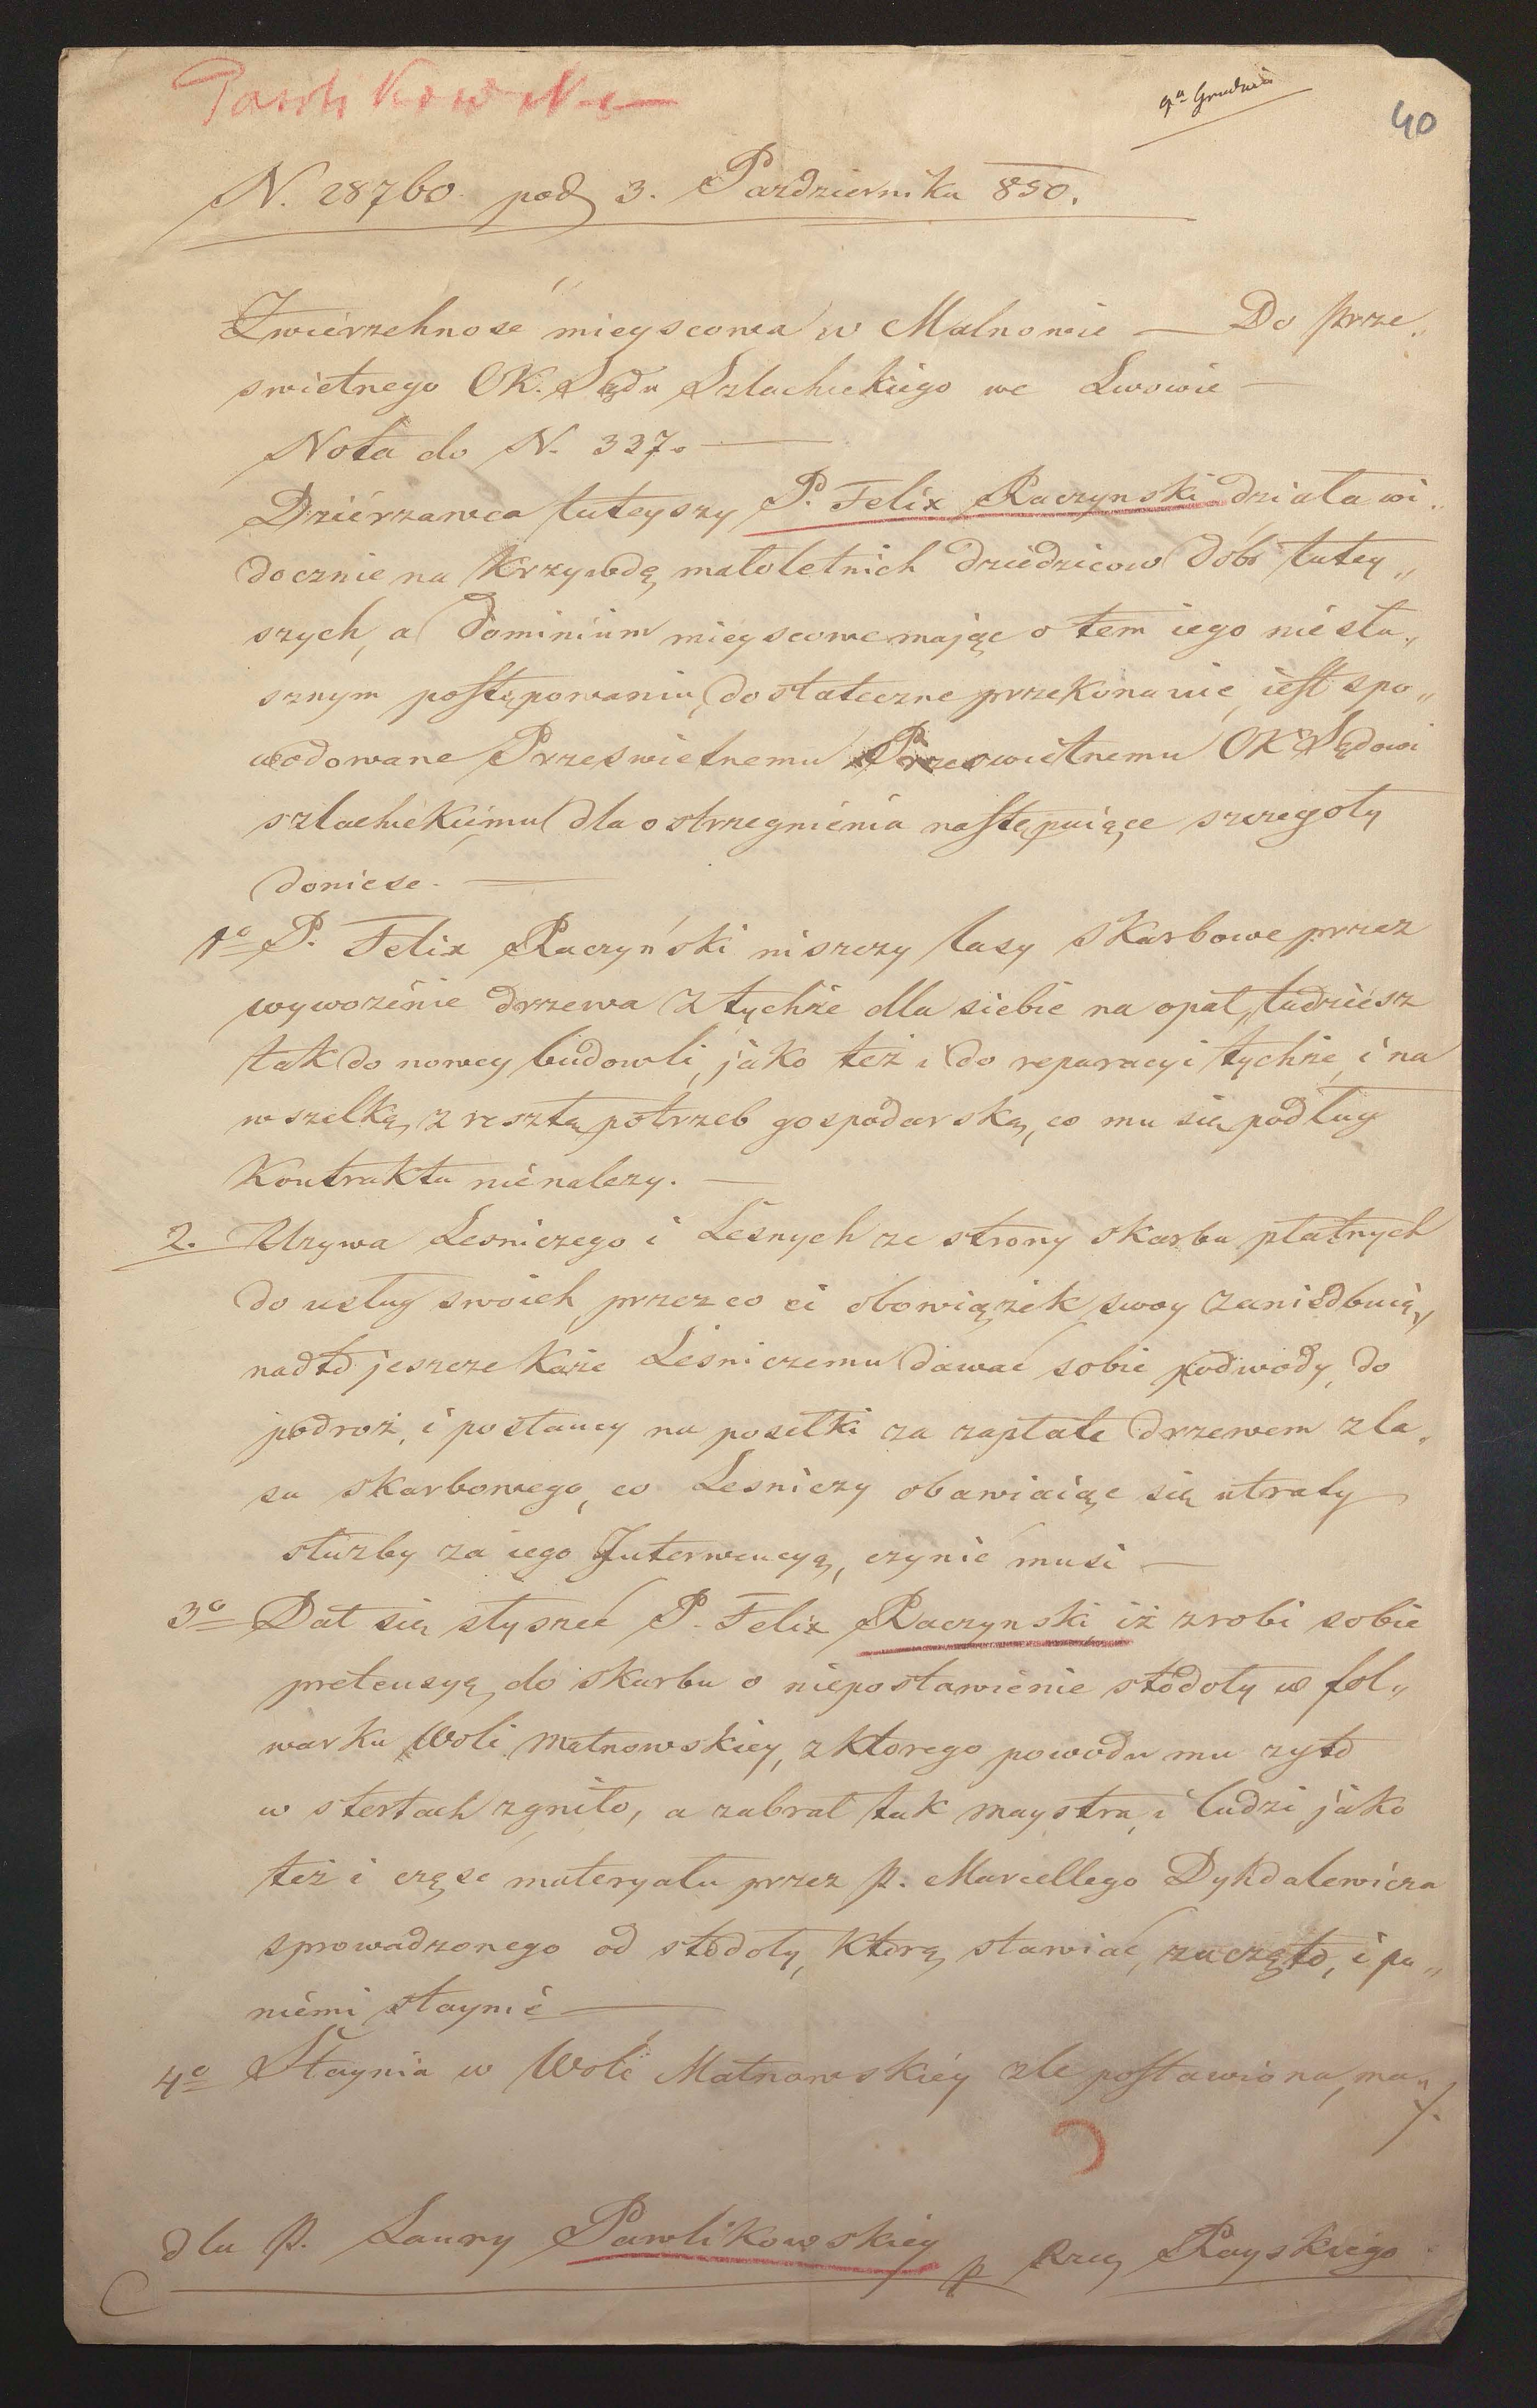 Pawlikowska
9ª Grudnia
40
N. 28760 pod 3. Pazdziernika 850.
Zwierzchnosć mieyscowa w Malnowie — Do Prze„
swietnego CK. Sądu Szlacheckiego we Lwowie —
Nota do N. 327. —
Dziérzawca tuteyszy P. Felix Raczynski działa wi„
docznie na krzywdę małoletnich dziedzicow dóbr tutey„
szych, a Dominium mieyscowe mając o tem iego niesłu„
sznym postępowaniu, dostateczne przekonanie, iest spo„
wodowane Przeswietnemu Przeswietnemu CK Sądowi
szlacheckiemu dla ostrzegnienia następuiące szczegoły
doniese. —
1º P. Felix Raczyński niszczy lasy skarbowe przez
wywozenie drzewa z tychże dla siebie na opał, tudziesz
tak do nowey budowli, jako też i do reparacyi tychże, i na
wszelką zresztą potrzeb gospodarską, co mu się podług
Kontraktu nienalezy. —
2. Uzywa Lesniczego i Lesnych ze strony skarbu płatnych
do usług swoich, przez co ci obowiązek swoy zaniedbuią,
nadto jeszcze każe Leśniczemu dawać sobie podwody, do
podroż, i posłancy na posełki za zapłate drzewem z la„
su skarbowego, co Lesniczy obawiaiąc się utraty
służby za iego Interwencyą, czynić musi —
3º Dał się słyszeć P. Felix Raczynski, iż zrobi sobie
pretensyą do skarbu o niepostawienie stodoły w fol„
warku Woli Małnowskiey, z ktorego powodu mu zyto
w stertach zgniło, a zabrał tak maystra, i ludzi jako
też i częsc materyału przez P. Marcellego Dykdalewicza
sprowadzonego od stodoły, którą stawiać, zaczęto, i pu„
niemi staynie —
4º Staynia w Woli Małnowskiéy zle postawiona, ma„
./.
dla P. Laury Pawlikowskiey p Rzey Rayskiego